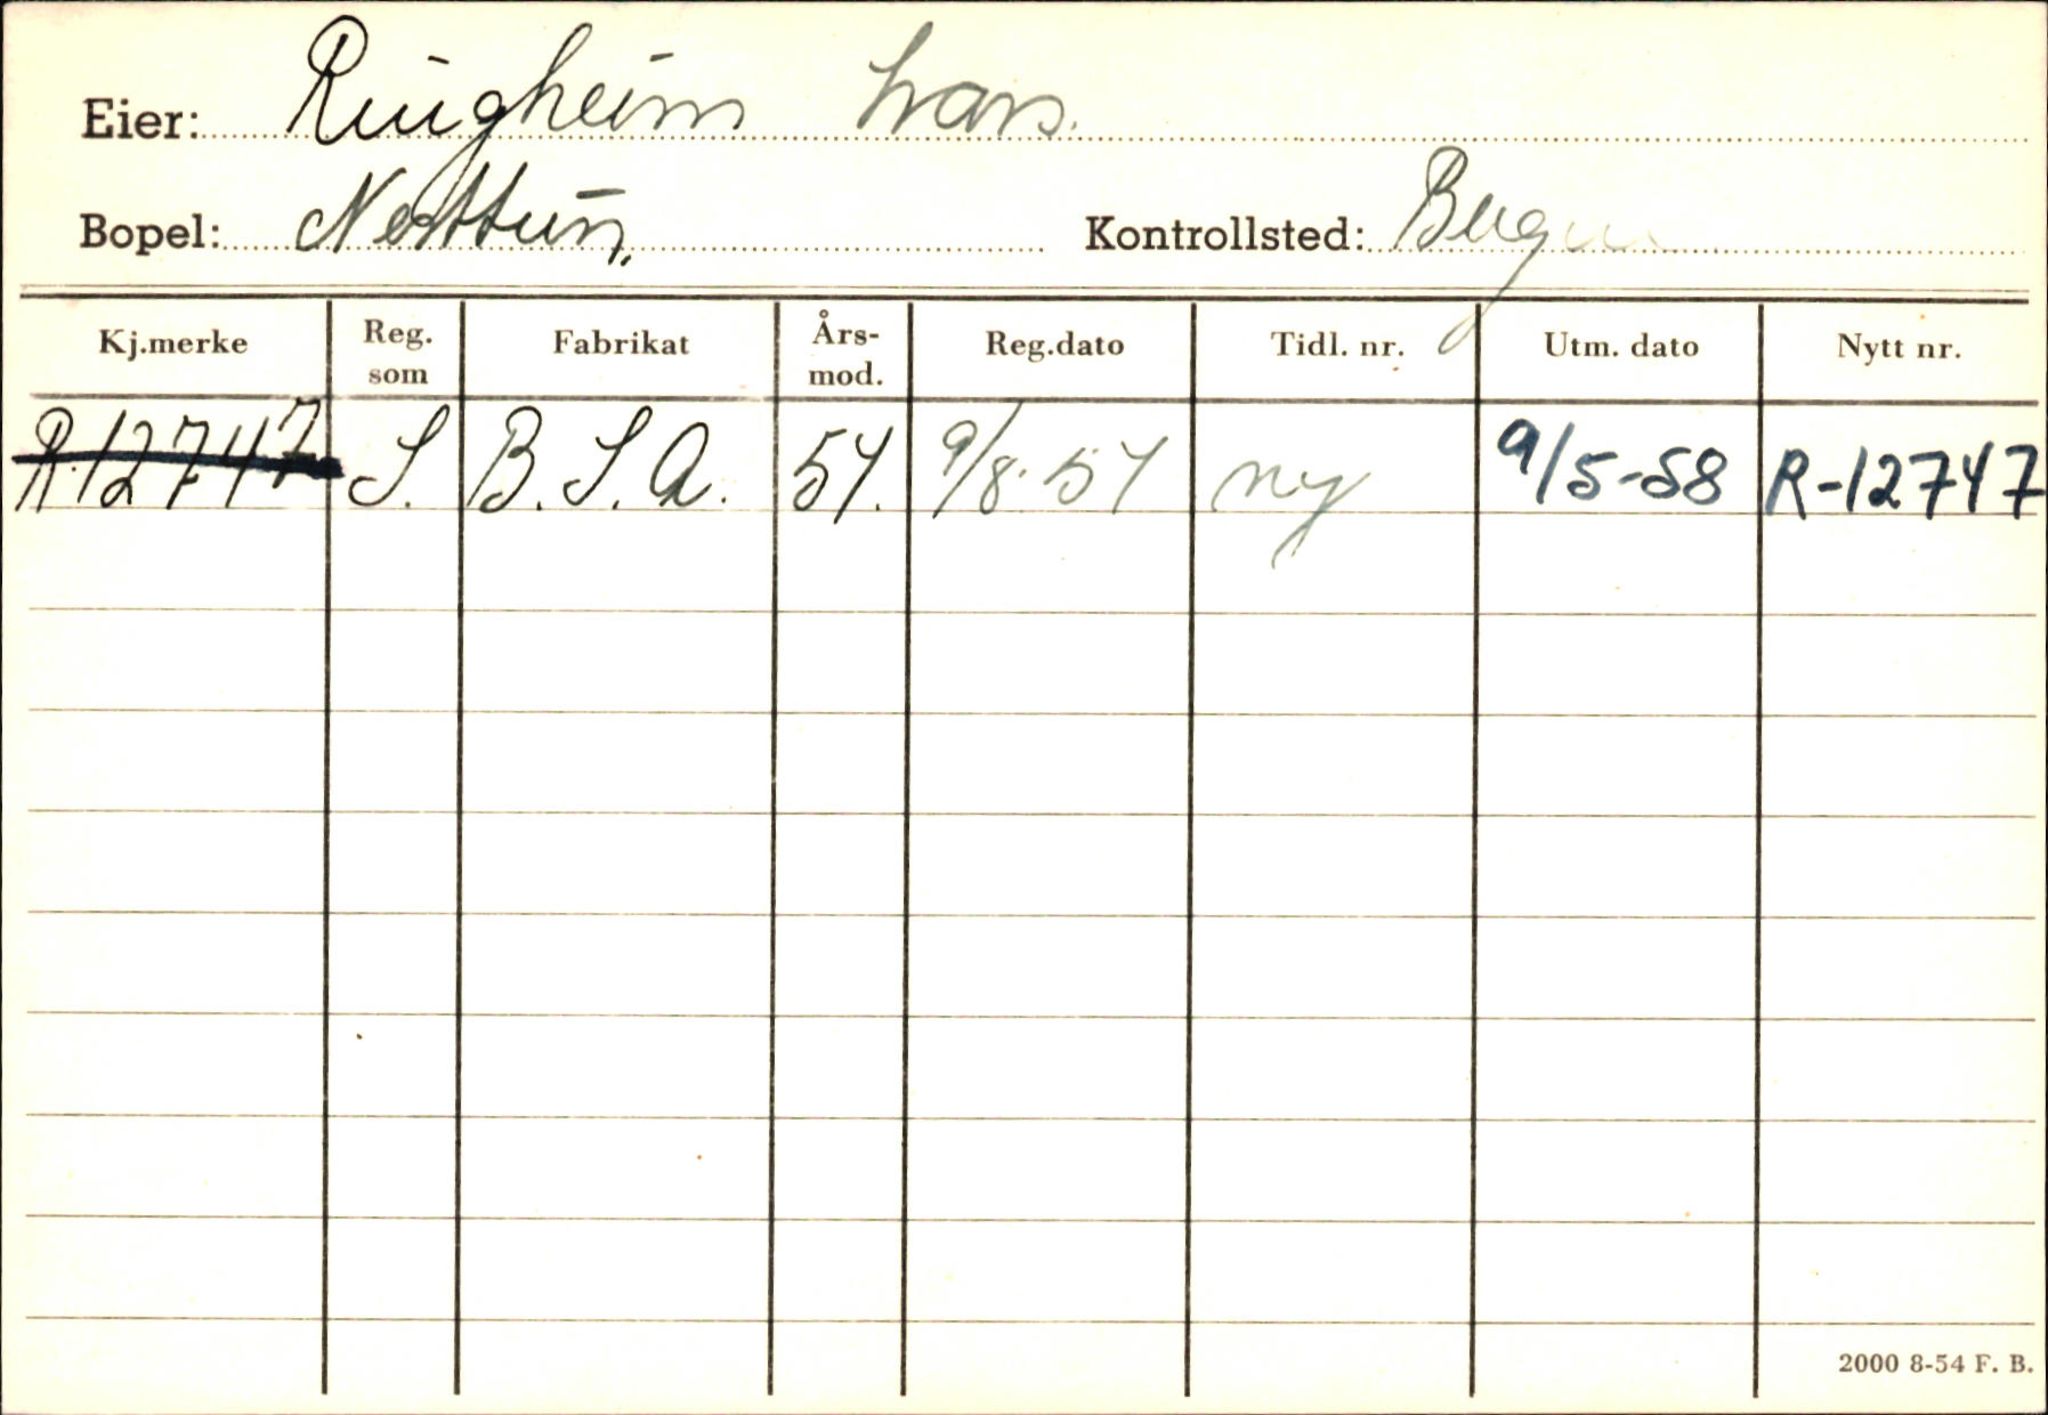 Eier: Ringheim Lars.
Bopel: Nesttun. Kontrollsted: Bergen
Kj.merke Reg. som Fabrikat Års-mod. Reg.dato Tidl. nr. Utm. dato Nytt nr.
R-12747 S. B.S.A. 54. 9/8-54 ny 9/5-58 R-12747
2000 8-54 F. B.